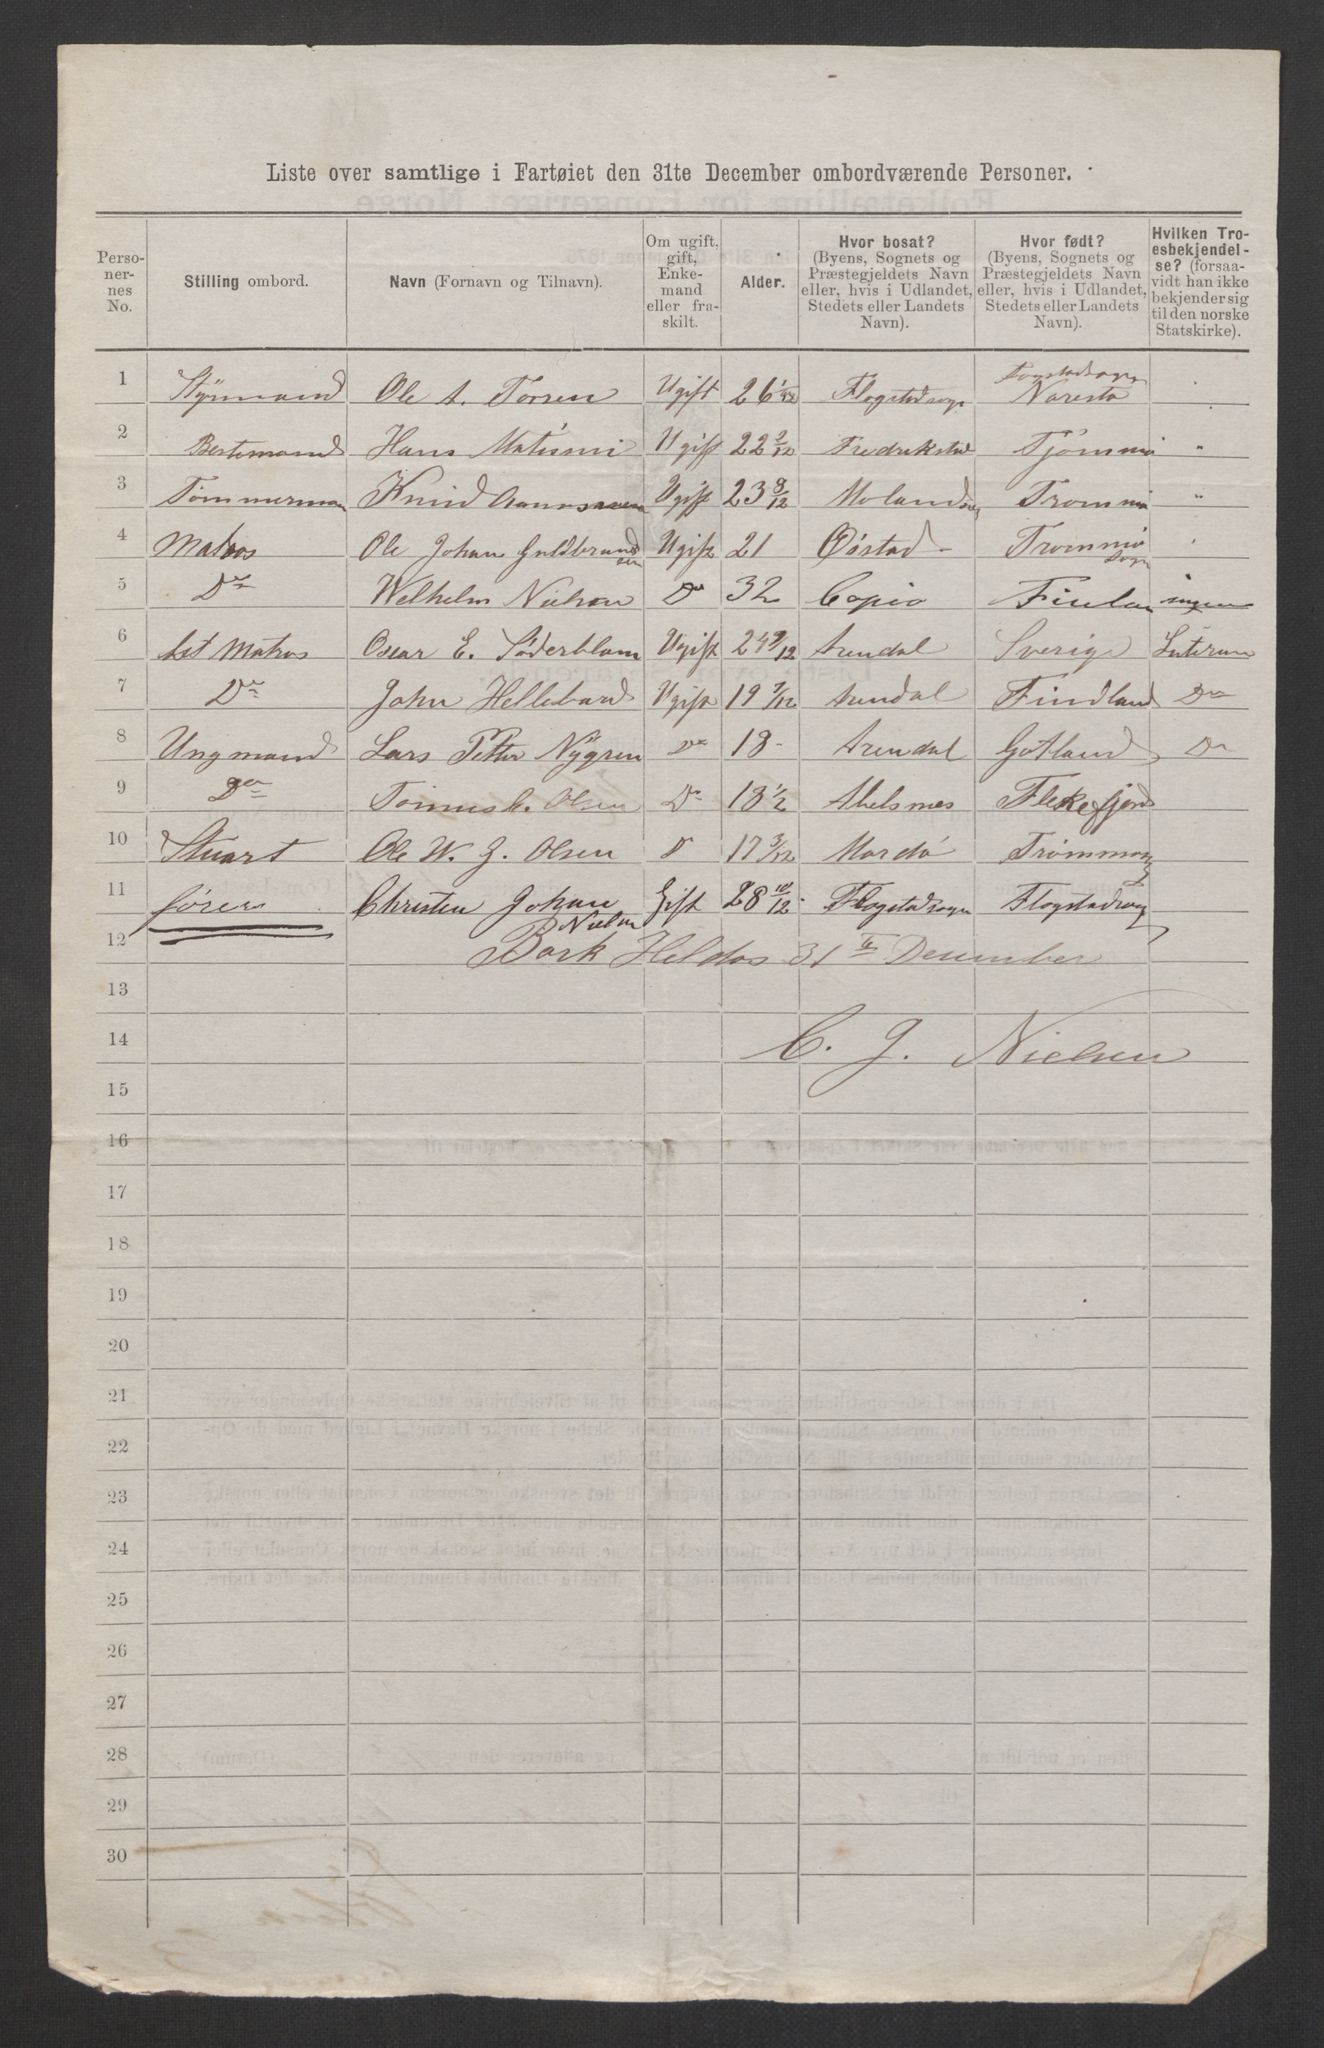 Liste over samtlige i Fartøiet den 31te December ombordværende Personer.
Personernes No. | Stilling ombord. | Navn (Fornavn og Tilnavn). | Om ugift, gift, Enkemand eller fraskilt. | Alder. | Hvor bosat? (Byens, Sognets og Præstegjeldets Navn eller, hvis i Udlandet, Stedets eller Landets Navn). | Hvor født? (Byens, Sognets og Præstegjeldets Navn eller, hvis i Udlandet, Stedets eller Landets Navn). | Hvilken Troesbekjendelse? (forsaavidt han ikke bekjender sig til den norske Statskirke).
1 Styrmand Ole A. Ugift 26 Flagstadsogn Naresto
2 Bestemand Hans Ugift 22 2/12 Fredrikstad Tjømmø "
3 Tømmerman Knud Ugift 23 8/12 Moland Trommø "
4 Matros Ole Johan Guldbrandsen Ugift 21 Øistad Trommø Sogn
5 Do Welhelm Nielsen Do 32 Copio Finlan
6 Let Matros Oscar E. Söderblom Ugift 24 9/12 Arendal Sverige Luteran
7 Do John Hellebard Ugift 19 7/12 Arendal Findland Do
8 Ungmand Lars Petter Nÿgren Do 18 Arendal Gotland Do
9 Do Olsen Do 18 1/2 Flekefjord
10 Stuart Ole W. J. Olsen D 17 3/12 Mardö
11 fører Christen Johan Nielsen Gift 28 10/12 Flagstadsogn Flagstadsogn
12 Bark Heldos 31te December
13
14 C. J. Nielsen
15
16
17
18
19
20
21
22
23
24
25
26
27
28
29
30